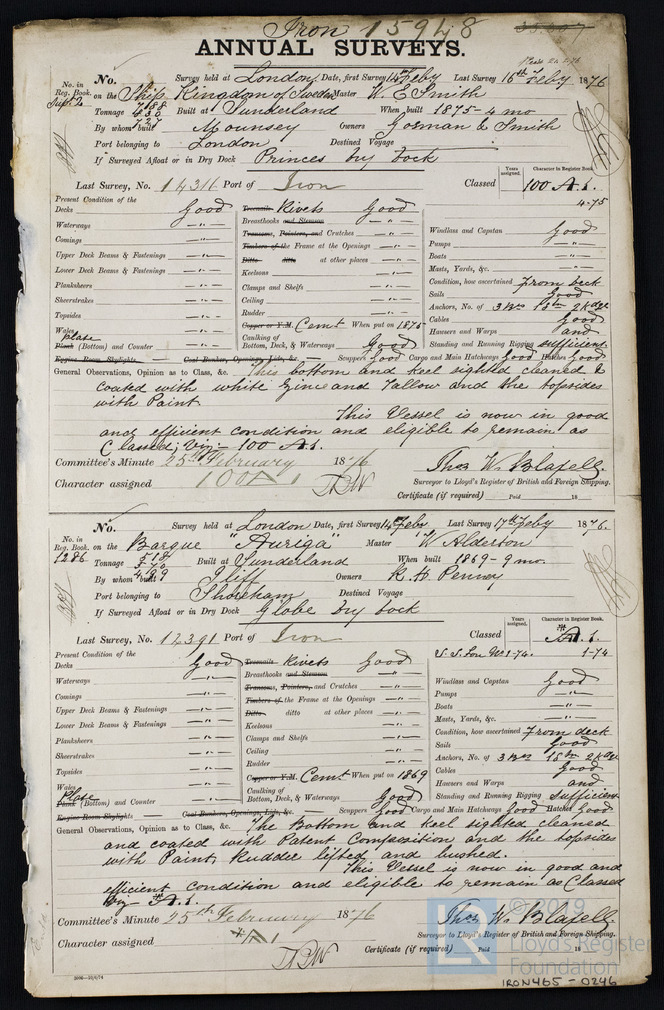 Iron 15948
ANNUAL SURVEYS.
No. in Reg. Book. Supt 2
No. Survey held at London Date, first Survey 14 Feby Last Survey 16th Feby 1876
on the Ship Kingdom of Sweden Master W. E. Smith
Tonnage Built at Sunderland When built 1875-4 mo
By whom built Mounsey Owners Gorman & Smith
Port belonging to London Destined Voyage
If Surveyed Afloat or in Dry Dock Princes Dry Dock
Last Survey, No. 14311 Port of Iron Classed 100 A.1.
Years assigned. Character in Register Book.
4.75
Present Condition of the
Decks Good
Waterways -"-
Comings -"-
Upper Deck Beams & Fastenings -"-
Lower Deck Beams & Fastenings -"-
Planksheers -"-
Sheerstrakes -"-
Topsides -"-
Wales -"-
Plate
Plank (Bottom) and Counter -"-
Engine Room Skylights,
Treenails Rivets Good
Breasthooks and Stemson -"-
Transoms, Pointers, and Crutches -"-
Timbers of the Frame at the Openings -"-
Ditto ditto at other places -"-
Keelsons -"-
Clamps and Shelfs -"-
Ceiling -"-
Rudder -"-
Copper or Y.M. Cemt When put on 1875
Caulking of Bottom, Deck, & Waterways Good
Windlass and Capstan Good
Pumps -"-
Boats -"-
Masts, Yards, &c. -"-
Condition, how ascertained From deck
Sails Good
Anchors, No. of 3 Brs 1 Stm 2 Kdge
Cables Good
Hawsers and Warps and
Standing and Running Rigging sufficient
Coal Bunker, Openings, Lids, &c. Scuppers Good Cargo and Main Hatchways Good Hatches Good
General Observations, Opinion as to Class, &c. This bottom and keel sighted cleaned &
coated with white Zinc and Tallow and the topsides
with Paint.
This Vessel is now in good
and efficient condition and eligible to remain as
Classed; Viz:- 100 A.1.
Committee's Minute 25th February 1876
Character assigned 100 A 1
Thos W. Blafell.
Surveyor to Lloyd's Register of British and Foreign Shipping.
Certificate (if required) Paid 18
No. in Reg. Book. 1286
No. Survey held at London Date, first Survey 14 Feby Last Survey 17th Feby 1876.
on the Barque "Auriga" Master W. Alderson
Tonnage Built at Sunderland When built 1869-9 mo.
By whom built Iliff Owners R. H. Penney
Port belonging to Shoreham Destined Voyage
If Surveyed Afloat or in Dry Dock Globe Dry Dock
Last Survey, No. 12391 Port of Iron Classed A.1.
Years assigned. Character in Register Book.
S. S. Lon No 1-74. 1-74
Present Condition of the
Decks Good
Waterways -"-
Comings -"-
Upper Deck Beams & Fastenings -"-
Lower Deck Beams & Fastenings -"-
Planksheers -"-
Sheerstrakes -"-
Topsides -"-
Wales -"-
Plate
Plank (Bottom) and Counter -"-
Engine Room Skylights
Treenails Rivets Good
Breasthooks and Stemson -"-
Transoms, Pointers, and Crutches -"-
Timbers of the Frame at the Openings -"-
Ditto ditto at other places -"-
Keelsons -"-
Clamps and Shelfs -"-
Ceiling -"-
Rudder -"-
Copper or Y.M. Cemt When put on 1869
Caulking of Bottom, Deck, & Waterways Good
Windlass and Capstan Good
Pumps -"-
Boats -"-
Masts, Yards, &c. -"-
Condition, how ascertained From deck
Sails Good
Anchors, No. of 3 Brs 1 Stm 2 Kdge
Cables Good
Hawsers and Warps and
Standing and Running Rigging sufficient
Coal Bunker, Openings, Lids, &c. Scuppers Good Cargo and Main Hatchways Good Hatches Good
General Observations, Opinion as to Class, &c. The Bottom and keel sighted cleaned
and coated with Patent Composition and the topsides
with Paint, Rudder lifted and bushed.
This Vessel is now in good and
efficient condition and eligible to remain as Classed
Viz A.1.
Committee's Minute 25th February 1876
Character assigned A 1
Thos W. Blafell
Surveyor to Lloyd's Register of British and Foreign Shipping.
Certificate (if required) Paid 18
© 2019
Lloyd's Register
Foundation
IRON465-0246